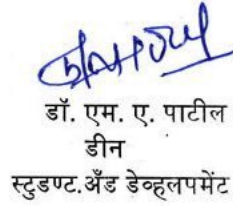 डॉ. एम. ए. पाटील
डीन
स्टुडण्ट.अँड डेव्हलपमेंट